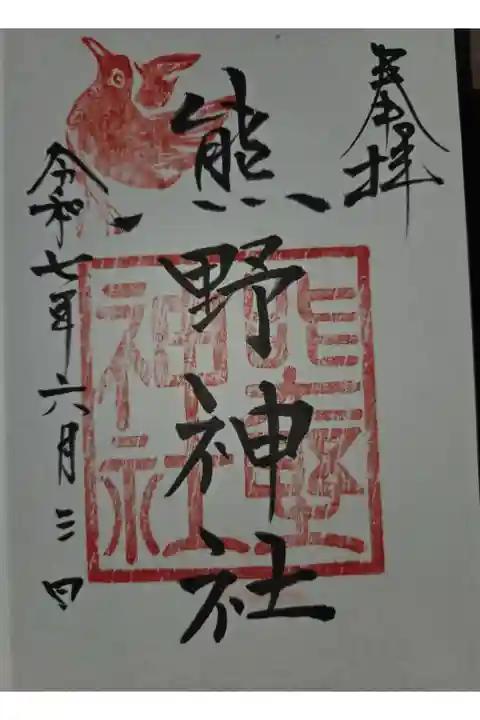 奉拝
熊野神社
令和七年六月三日
熊野神社